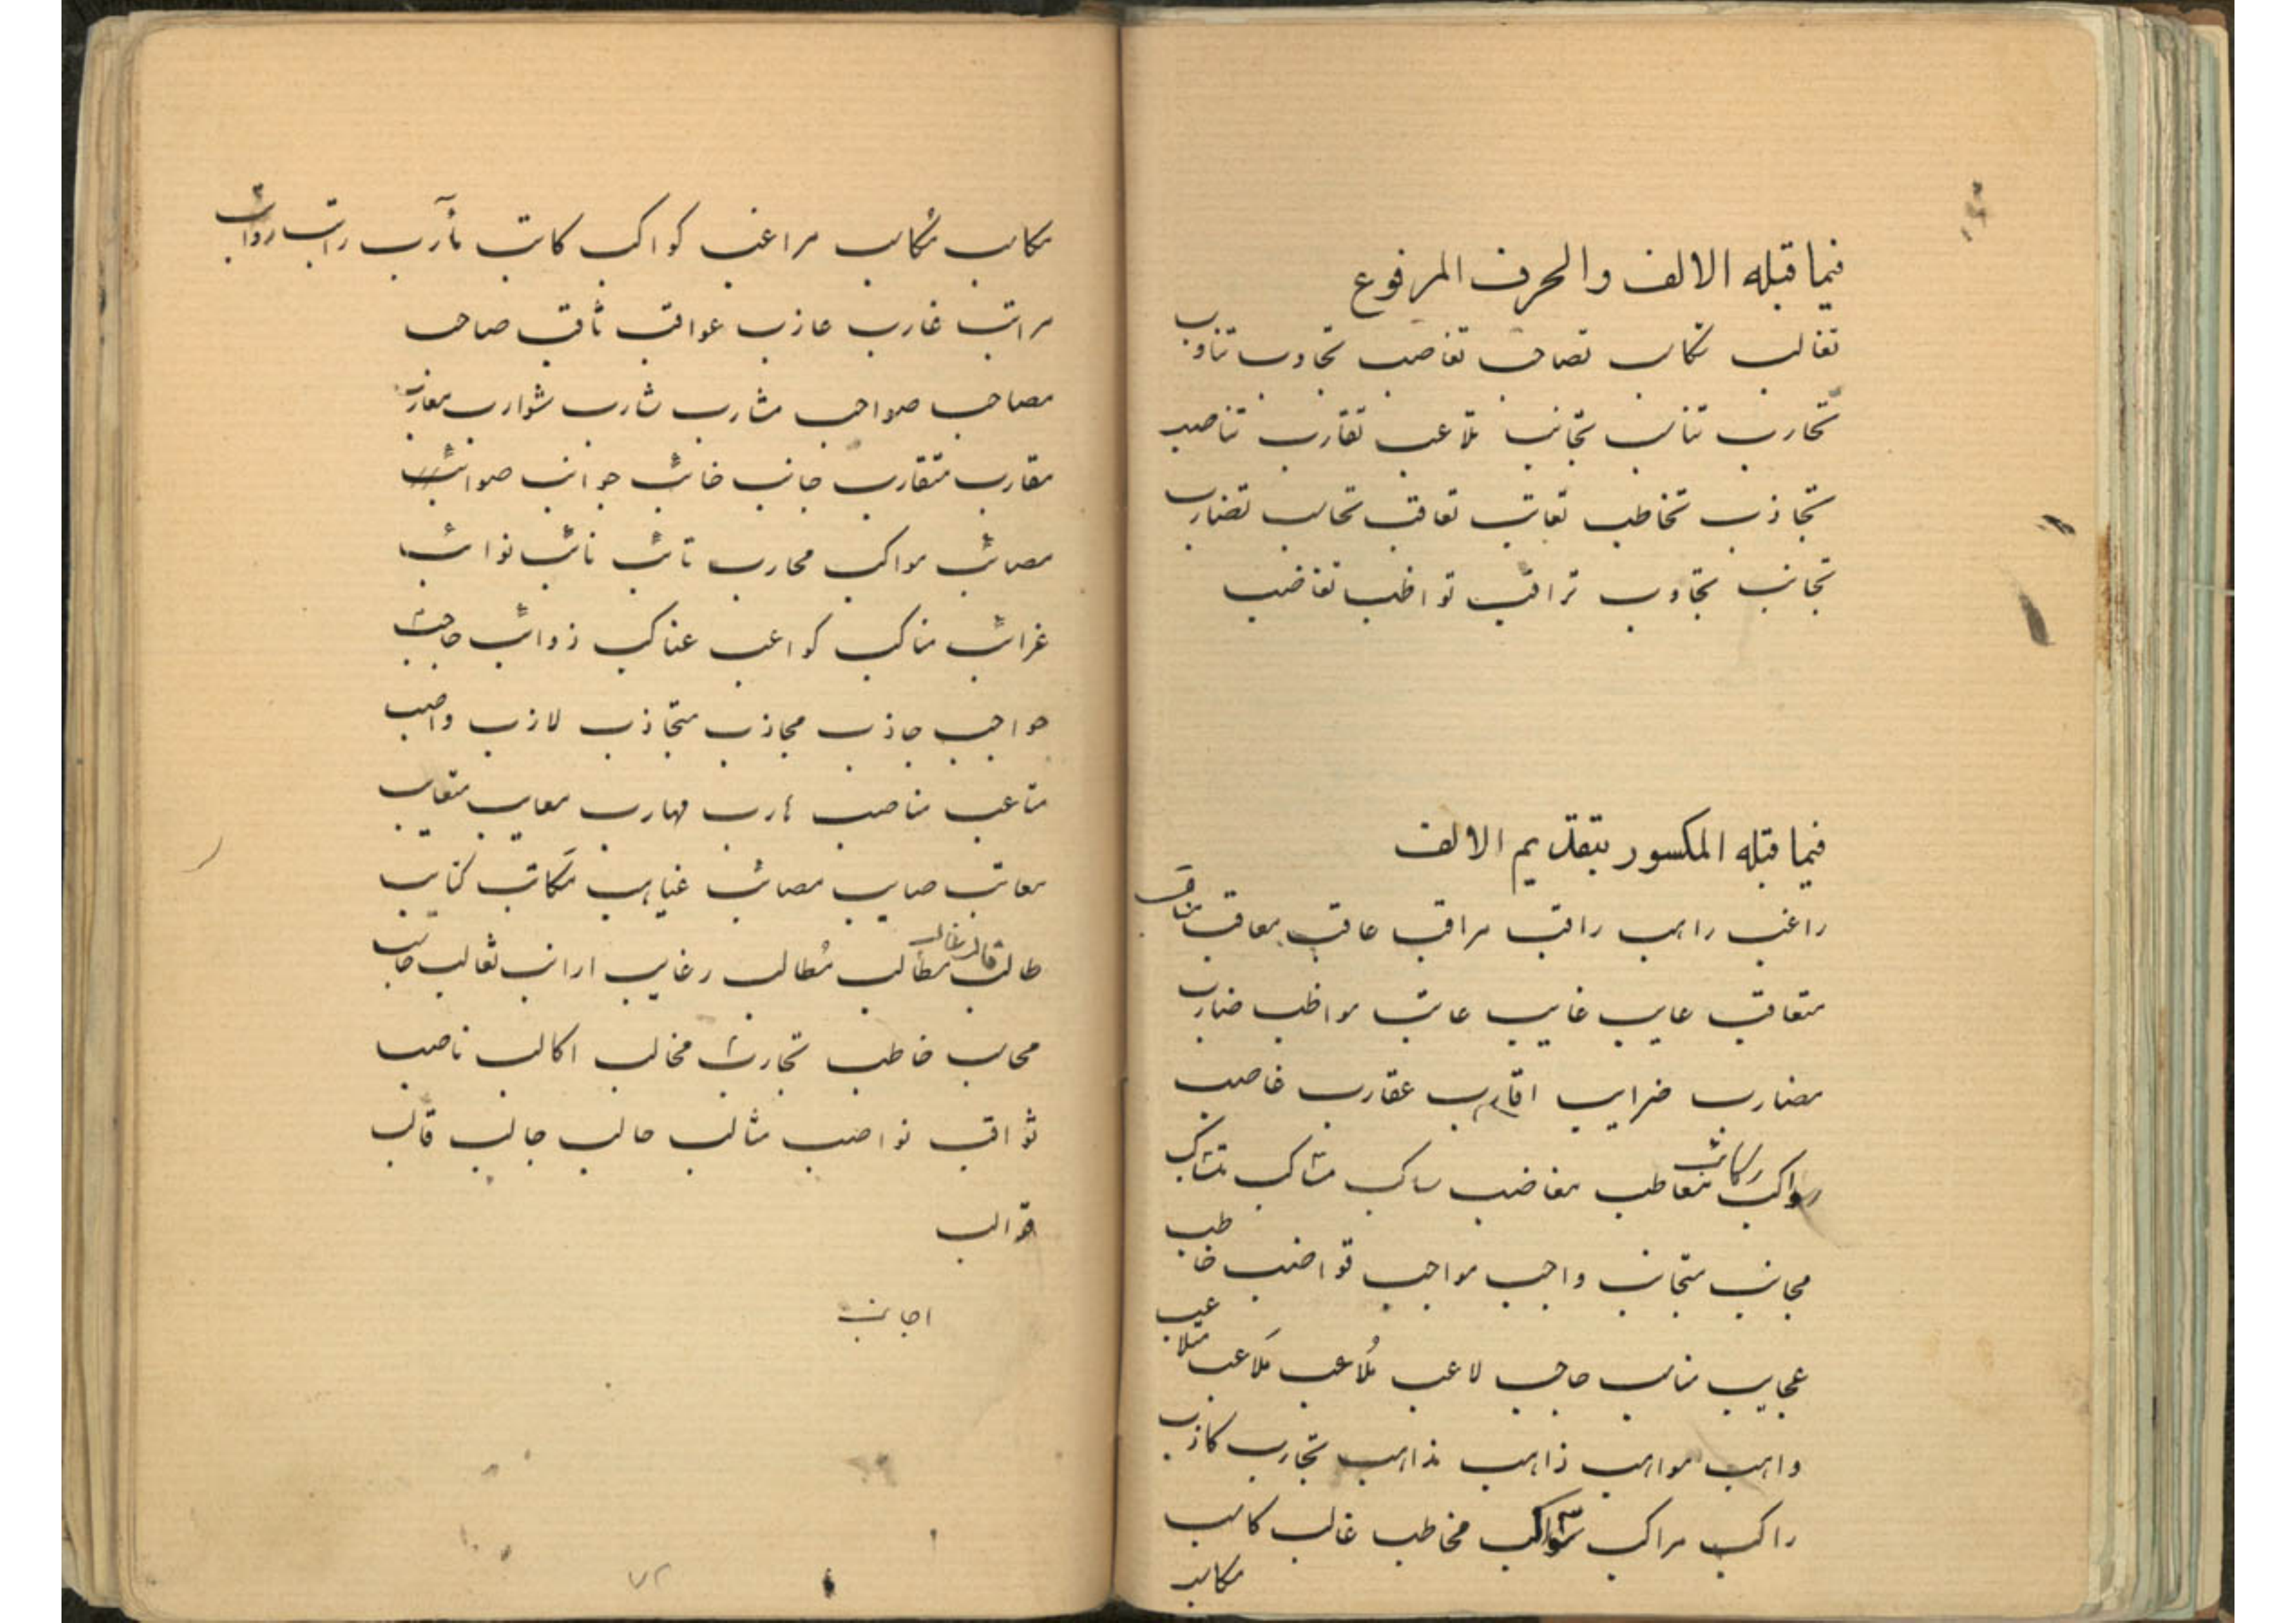 فيما قبله الالف والحرف المرفوع
تغالب تكالب تصاحب تغاصب تجاوب تناوب
تحارب تناسب تجانب تلاعب تقارب تناصب
تجاذب تخاطب تعاتب تعاقب تحاسب تضارب
تجانب تجاوب تراقب تواظب تغاضب
فيما قبله المكسور بتقديم الالف
راغب راهب راقب مراقب عاقب معاقب مناقب
متعاقب عايب غايب عاتب مواظب ضارب
مضارب ضرايب اقارب عقارب غاصب
رواكب ركائب معاطب مغاضب ساكب متشاكب
مجانب متجانب واجب مواجب قواضب خاطب
عجايب مناسب حاجب لاعب مُلاعب مَلاعب متلاعب
واهب مواهب ذاهب مذاهب تجارب كاذب
راكب مراكب سواكب مخاطب غالب كاسب
مكاسب
مكاسب مراغب كواكب كاتب مآرب راتب رواتب
مراتب غارب عازب عواقب ثاقب صاحب
مصاحب صواحب مشارب شارب شوارب مغارب
مقارب متقارب جانب خائب جوانب صوائب
مصائب مواكب محارب تائب نائب نوائب
غرائب مناكب كواعب عناكب ذوائب حاجب
حواجب جاذب مجاذب متجاذب لازب واصب
متاعب مناصب هارب مهارب معايب متعايب
معاتب صايب مصائب غياهب مكاتب كتايب
طالب قالب غالب مطالب مُطالب رغايب ارانب ثعالب جانب
محاسب خاطب تجارب مخالب اكالب ناصب
ثواقب نواصب مثالب حالب جالب قالب
قوالب
اجانب
٧٢